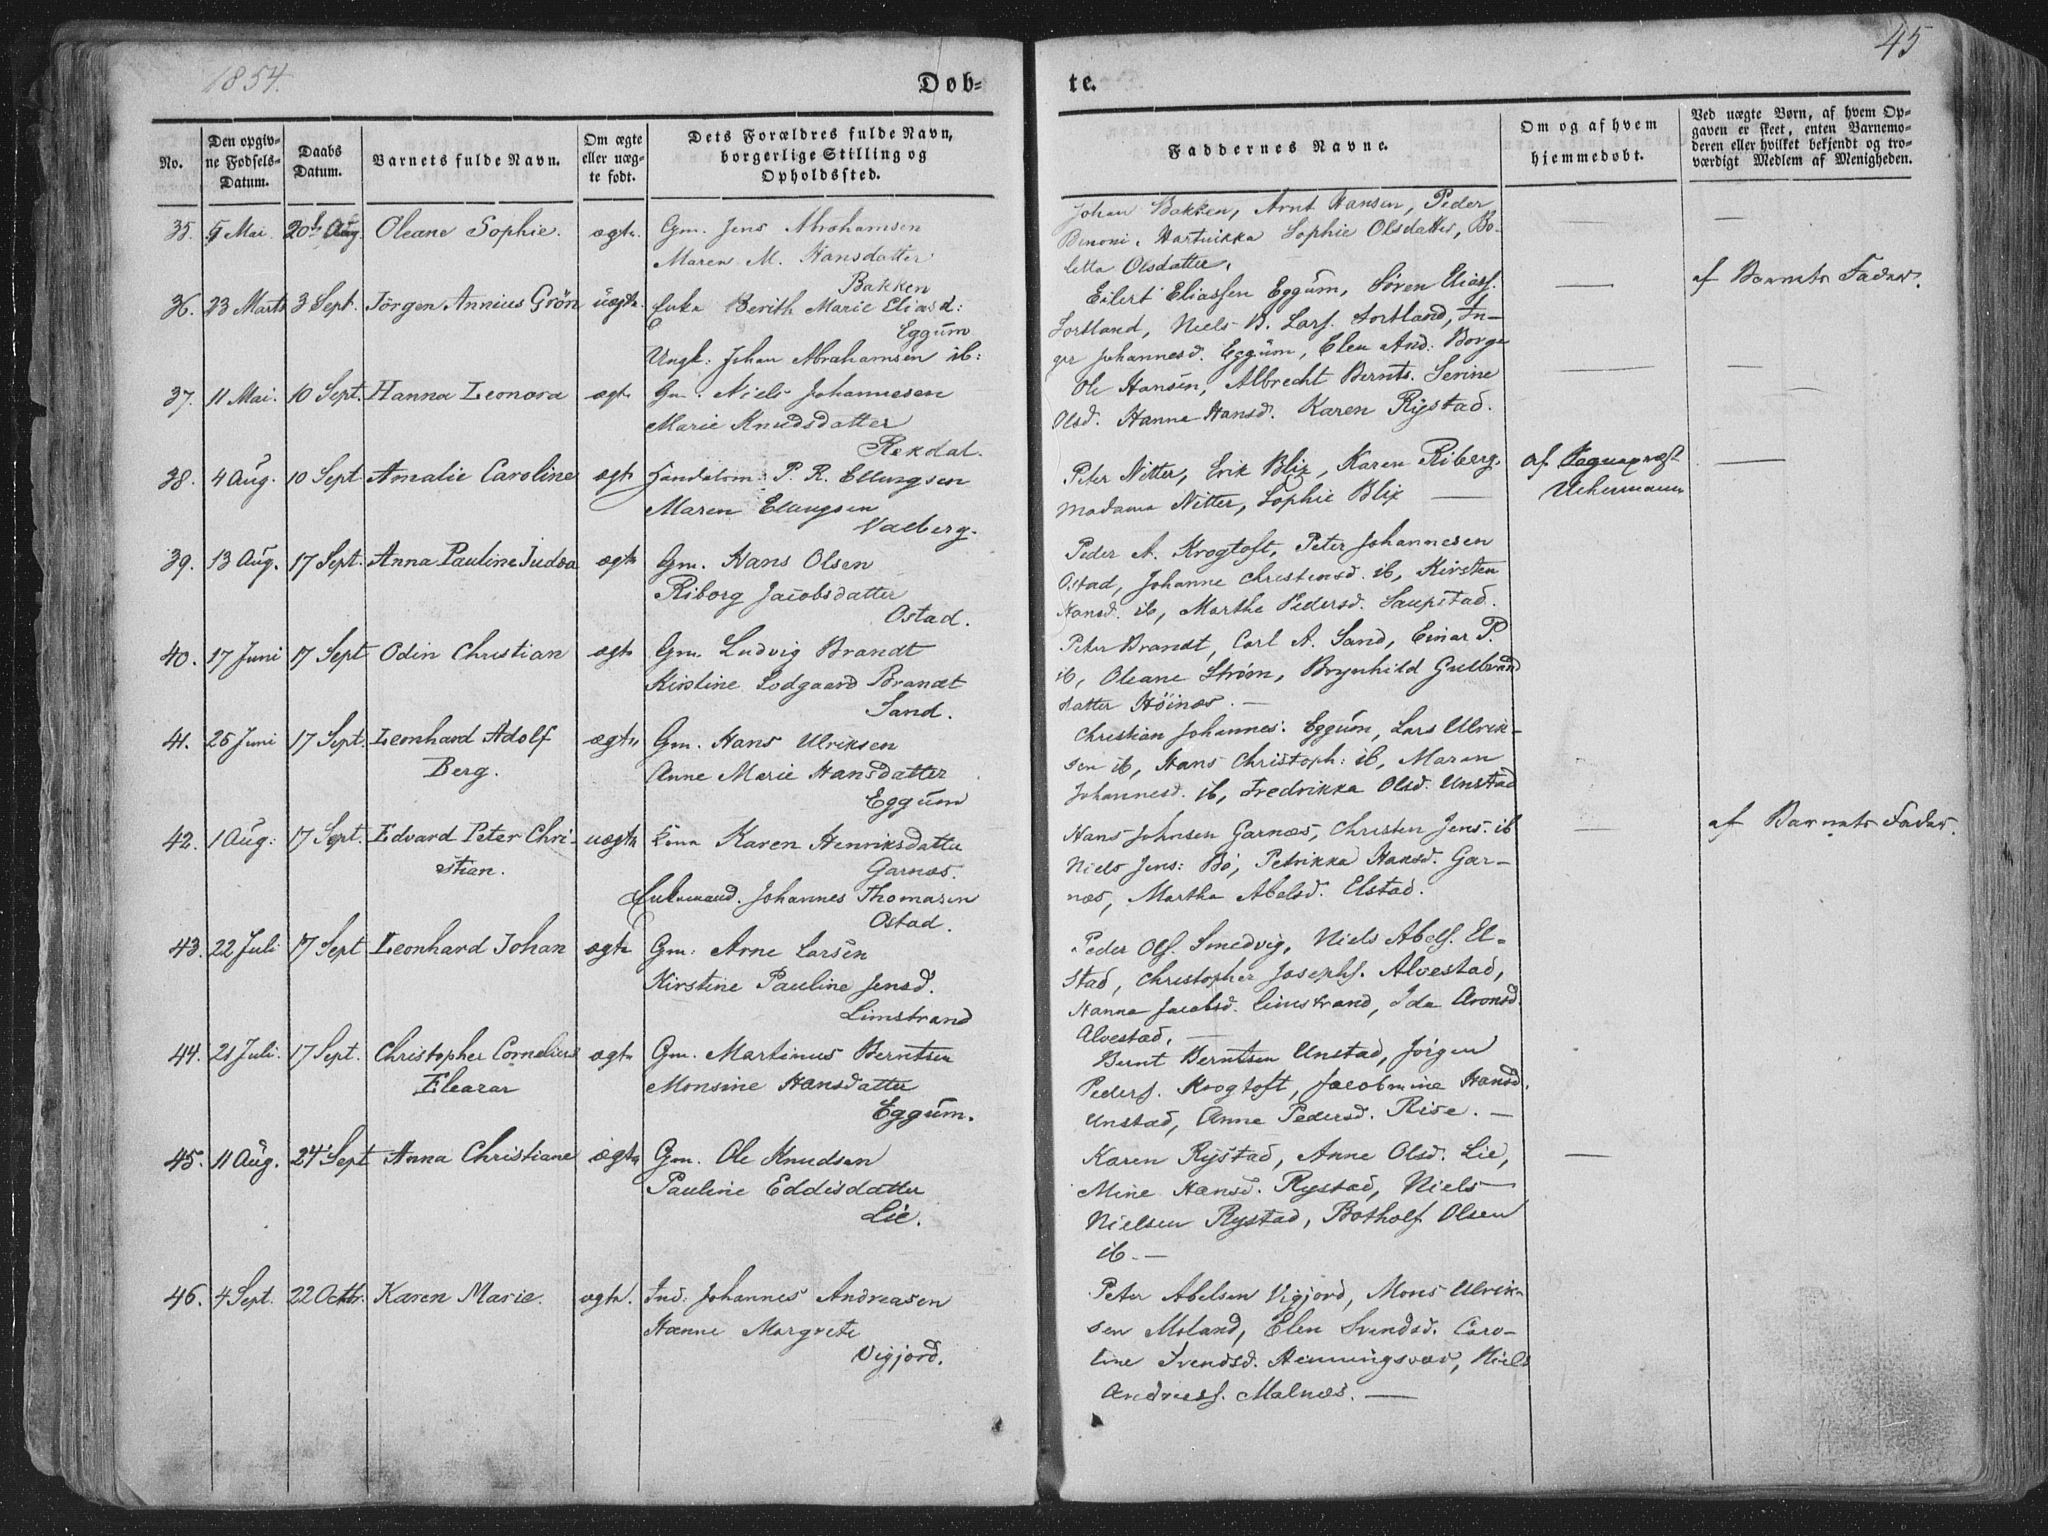 1854.
45
Døb-
te.
No.
Den opgiv-
ne Fødsels-
Datum.
Daabs
Datum.
Barnets fulde Navn.
Om ægte
eller uæg-
te født.
Dets Forældres fulde Navn,
borgerlige Stilling og
Opholdssted.
Faddernes Navne.
Om og af hvem
hjemmedøbt.
Ved uægte Børn, af hvem Op-
gaven er skeet, enten Barnemo-
deren eller hvilket bekjendt og tro-
værdigt Medlem af Menigheden.
35. Mai 20 Aug Oleane Sophie. ægte Gm. Jens Abrahamsen
Maren M. Hansdatter
Bakken
Johan Bakken, Arnt Hansen, Peder
Benoni, Hartvikka Sophie Olsdatter, Bo-
letta Olsdatter.
36. 23 Marts 3 Sept. Jörgen Annius Grön uægte. Enke Berith Marie Eliasd:
Eggum
Ungk: Johan Abrahamsen ib:
Eilert Eliassen Eggum, Sören Eliass.
Sortland, Niels B. Lars. Sortland, In-
ger Johannesd. Eggum, Elen And: Borge
af Barnets Fader.
37. 11 Mai. 10 Sept. Hanna Leonora ægte Gm. Niels Johannesen
Marie Knudsdatter
Rekdal.
Ole Hansen, Albrecht Bernts. Serine
Olsd. Hanne Hansd. Karen Rystad.
38. 4 Aug. 10 Sept Amalie Caroline ægte Handelsm: P. R. Ellingsen
Maren Ellingsen
Valberg.
Peter Nitter, Erik Blix, Karen Riberg.
Madame Nitter, Sophie Blix
af Sognepræst
Uchermann
39. 13 Aug. 17 Sept. Anna Pauline Judea ægte Gm. Hans Olsen
Riborg Jacobsdatter
Ostad.
Peder A. Krogtoft, Peter Johannesen
Ostad, Johanne Christensd. ib, Kirsten
Hansd. ib, Marthe Pedersd. Saupstad.
40. 17 Juni 17 Sept Odin Christian ægte Gm. Ludvig Brandt
Kirstine Lodgaard Brandt
Sand.
Peter Brandt, Carl A. Sand, Einar P.
ib, Oleane Strøm, Brynhild Gulbrand
datter Höinæs.
41. 26 Juni 17 Sept. Leonhard Adolf
Berg.
ægte Gm. Hans Ulriksen
Anne Marie Hansdatter
Eggum
Christian Johannes: Eggum, Lars Ulrik-
sen ib, Hans Christoph: ib, Maren
Johannesd. ib, Fredrikka Olsd. Unstad
42. 1 Aug: 17 Sept. Edvard Peter Chri-
stian.
uægte Karen Henriksdatter
Garnæs.
Enkemand. Johannes Thomasen
Ostad.
Hans Johnsen Garnæs, Christen Jens. ib
Niels Jens: Bö, Petrikka Hansd. Gar-
næs, Martha Abelsd. Elstad.
af Barnets Fader.
43. 22 Juli 17 Sept Leonhard Johan ægte Gm: Arne Larsen
Kirstine Pauline Jensd.
Limstrand
Peder Ols. Smedvig, Niels Abels. El-
stad, Christopher Josephs. Alvestad,
Hanna Jacobsd. Limstrand, Ida Aronsd.
Alvestad.
44. 21 Juli. 17 Sept. Christopher Cornelius
Eleazar
ægte Gm. Martinus Berntsen
Monsine Hansdatter
Eggum.
Bernt Berntsen Unstad, Jörgen
Peders. Krogtoft, Jacobmine Hansd.
Unstad, Anne Pedersd. Rise.
45. 11 Aug. 24 Sept Anna Christiane ægte Gm. Ole Knudsen
Pauline Eddisdatter
Lie.
Karen Rystad, Anne Olsd. Lie,
Mine Hansd. Rystad, Niels
Nielsen Rystad, Botholf Olsen
ib.
46. 4 Sept. 22 Octbr. Karen Marie. ægte. Ind: Johannes Andreasen
Hanne Margrete
Vigjord.
Peter Abelsen Vigjord, Mons Ulrik-
sen Moland, Elen Svendsd. Caro-
line Svendsd. Henningsvær, Niels
Andreass. Malnæs.